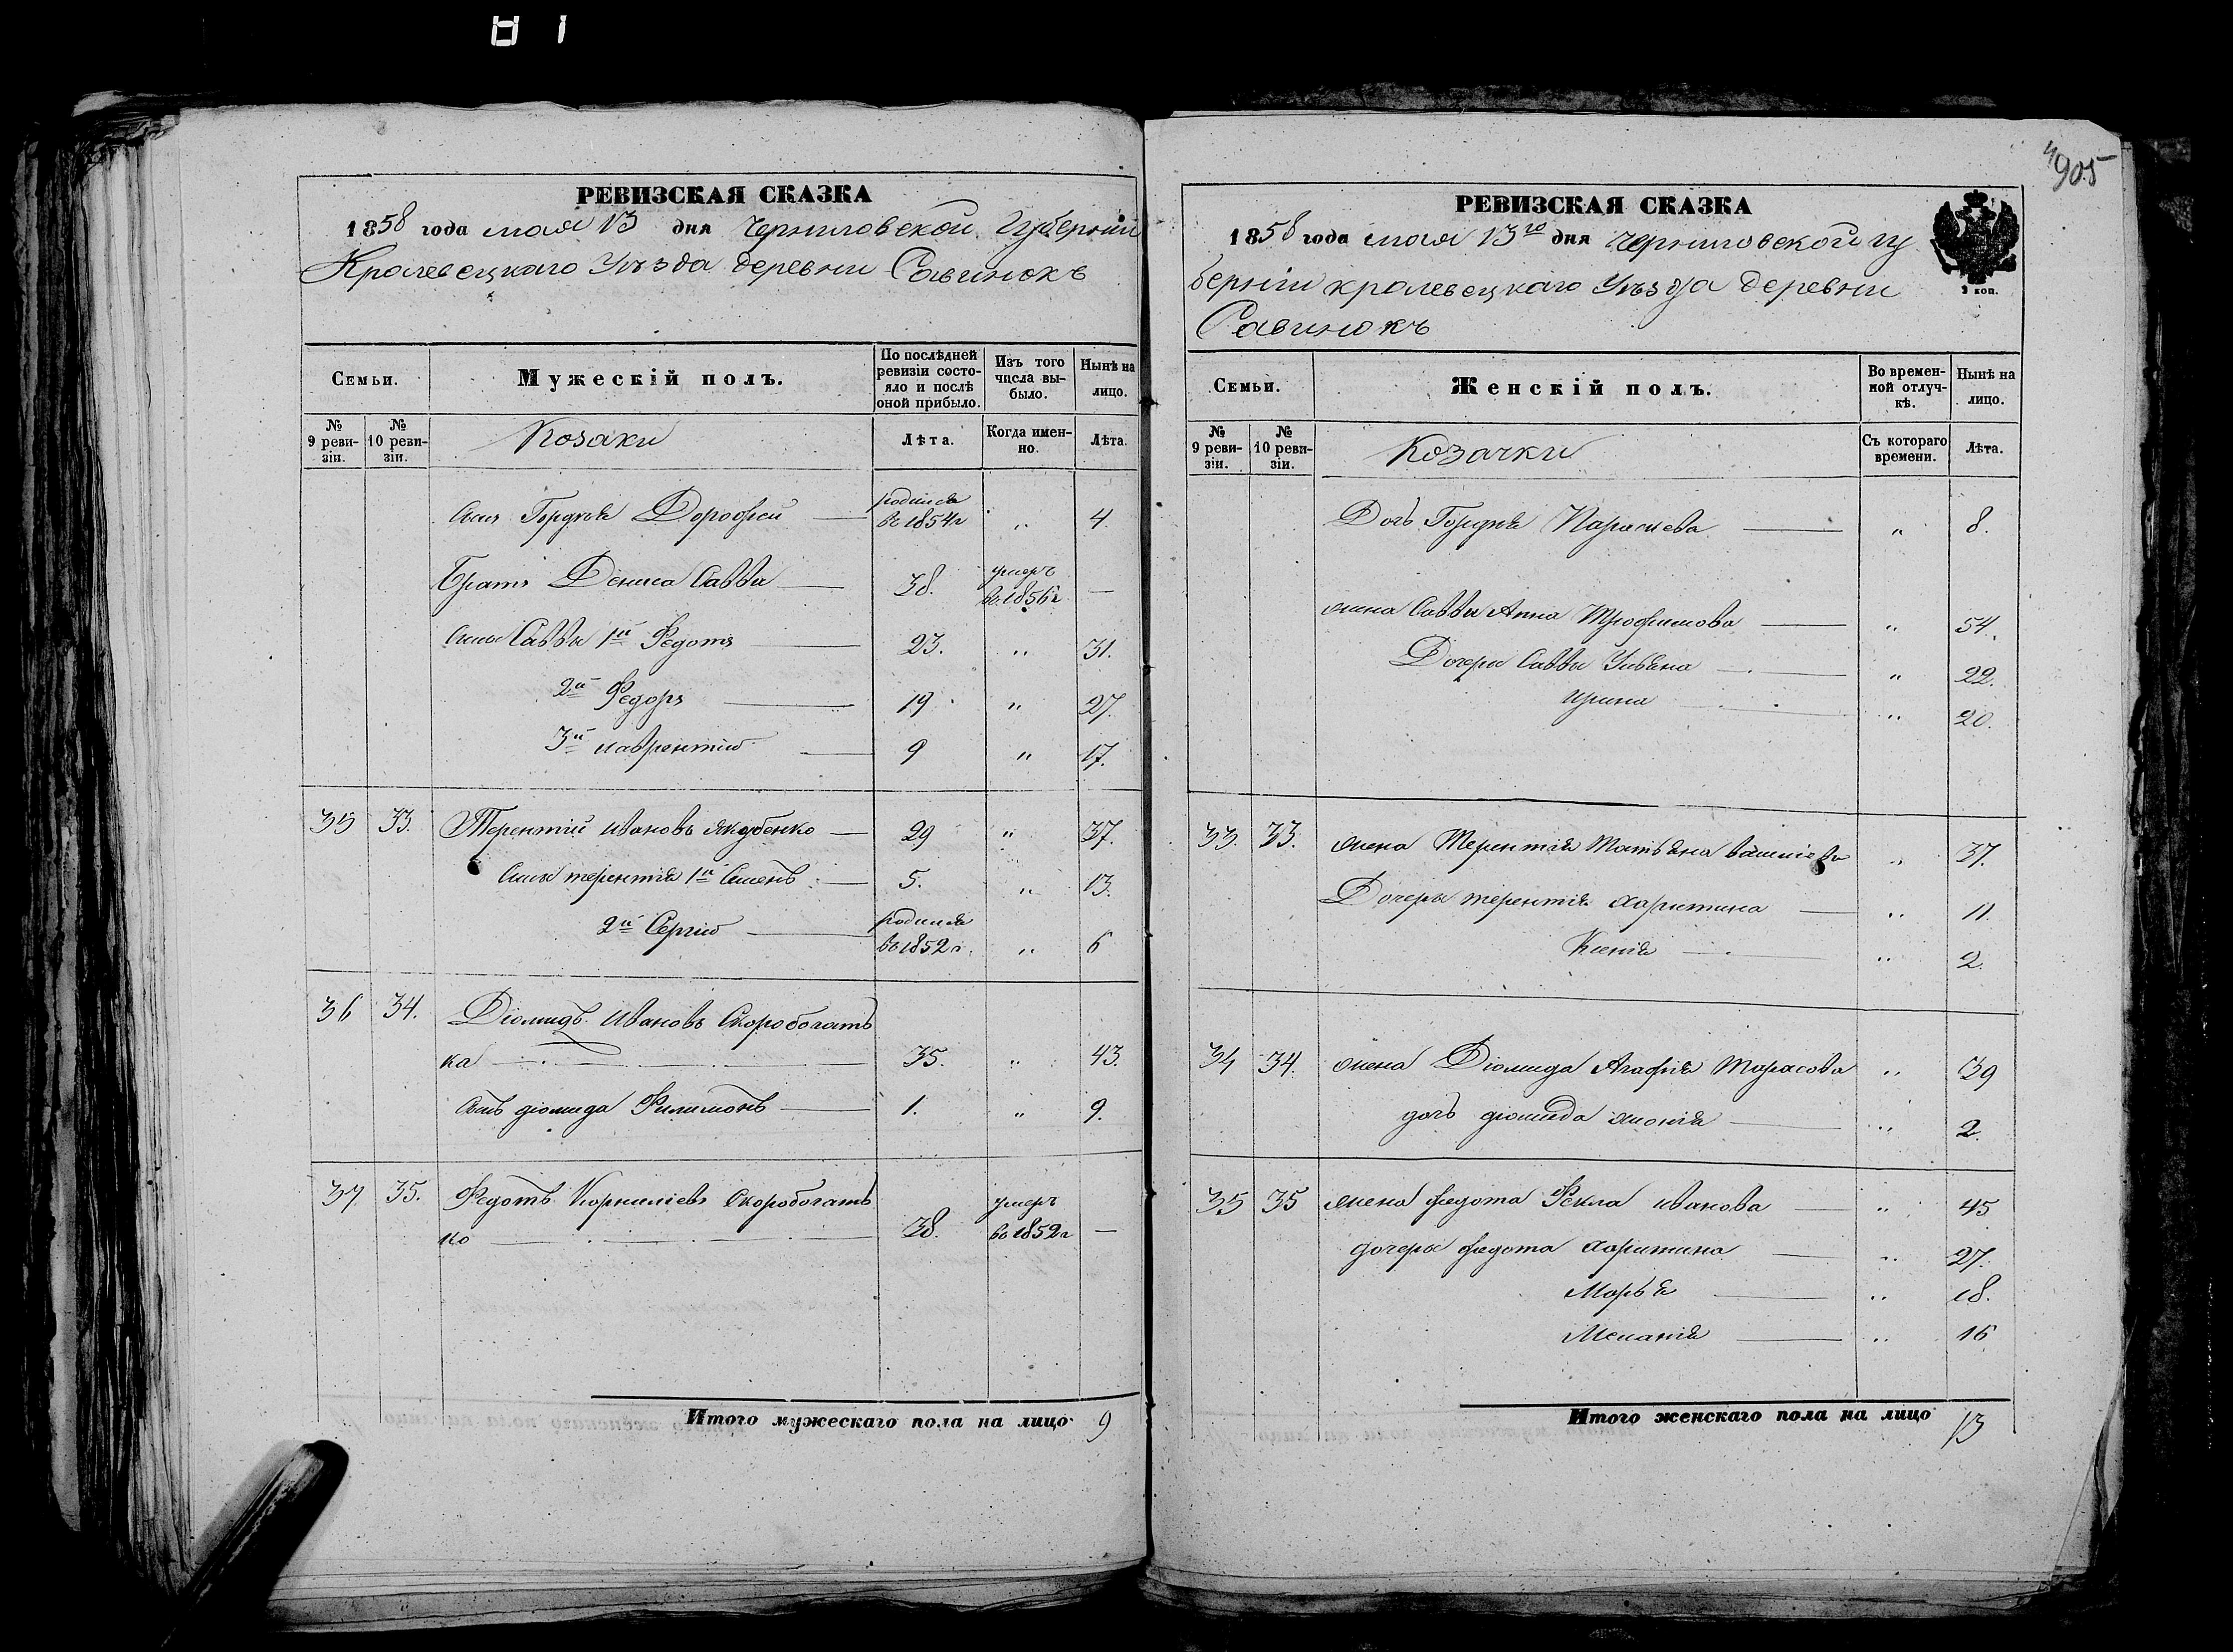 81
РЕВИЗСКАЯ СКАЗКА
1858 года мая 13 дня Черниговской Губерніи
Кролевецкаго Уѣзда деревни Савинокъ
Семьи.
Мужескій полъ.
По послѣдней ревизіи состояло и послѣ оной прибыло.
Изъ того числа выбыло.
Нынѣ на лицо.
№ 9 ревизіи.
№ 10 ревизіи.
Козаки
Лѣта.
Когда именно.
Лѣта.
Сынъ Гордѣя Дорофей родился во 1854г „ 4.
Братъ Дениса Савва 38. умеръ во 1856г —
Сыны Саввы 1й Федотъ 23. „ 31.
2й Федоръ 19 „ 27.
3й Лаврентій 9 „ 17.
35 33. Терентій Ивановъ Якубенко 29 „ 37.
Сыны терентія 1й Семенъ 5. „ 13.
2й Сергій родился во 1852г. „ 6
36 34. Діомидъ Ивановъ Скоробогать
ка 35. „ 43.
Сынъ діомида Филимонъ 1. „ 9.
37 35. Федотъ Корниліевъ Скоробогать
ко 38. умеръ во 1852г —
Итого мужескаго пола на лицо 9
905
РЕВИЗСКАЯ СКАЗКА
1858 года мая 13го дня Черниговской гу
берніи кролевецкаго Уѣзда деревни
Савинокъ
2 коп.
Семьи.
Женскій полъ.
Во временной отлучкѣ.
Нынѣ на лицо.
№ 9 ревизіи.
№ 10 ревизіи.
Козачки
Съ котораго времени.
Лѣта.
Дочь Гордѣя „ 8.
жена Саввы Анна Трофимова „ 54.
Дочери Саввы Ульяна „ 22.
Ирина „ 20.
33. 33. жена Терентія Татьяна „ 37.
Дочери терентія харитина „ 11.
Ксенія „ 2.
34 34. жена Діомида Агафія Тарасова „ 39
дочь діомида „ 2.
35 35 жена федота Фекла иванова „ 45
дочери федота харитина „ 27.
Марья „ 18.
Меланія „ 16
Итого женскаго пола на лицо 13